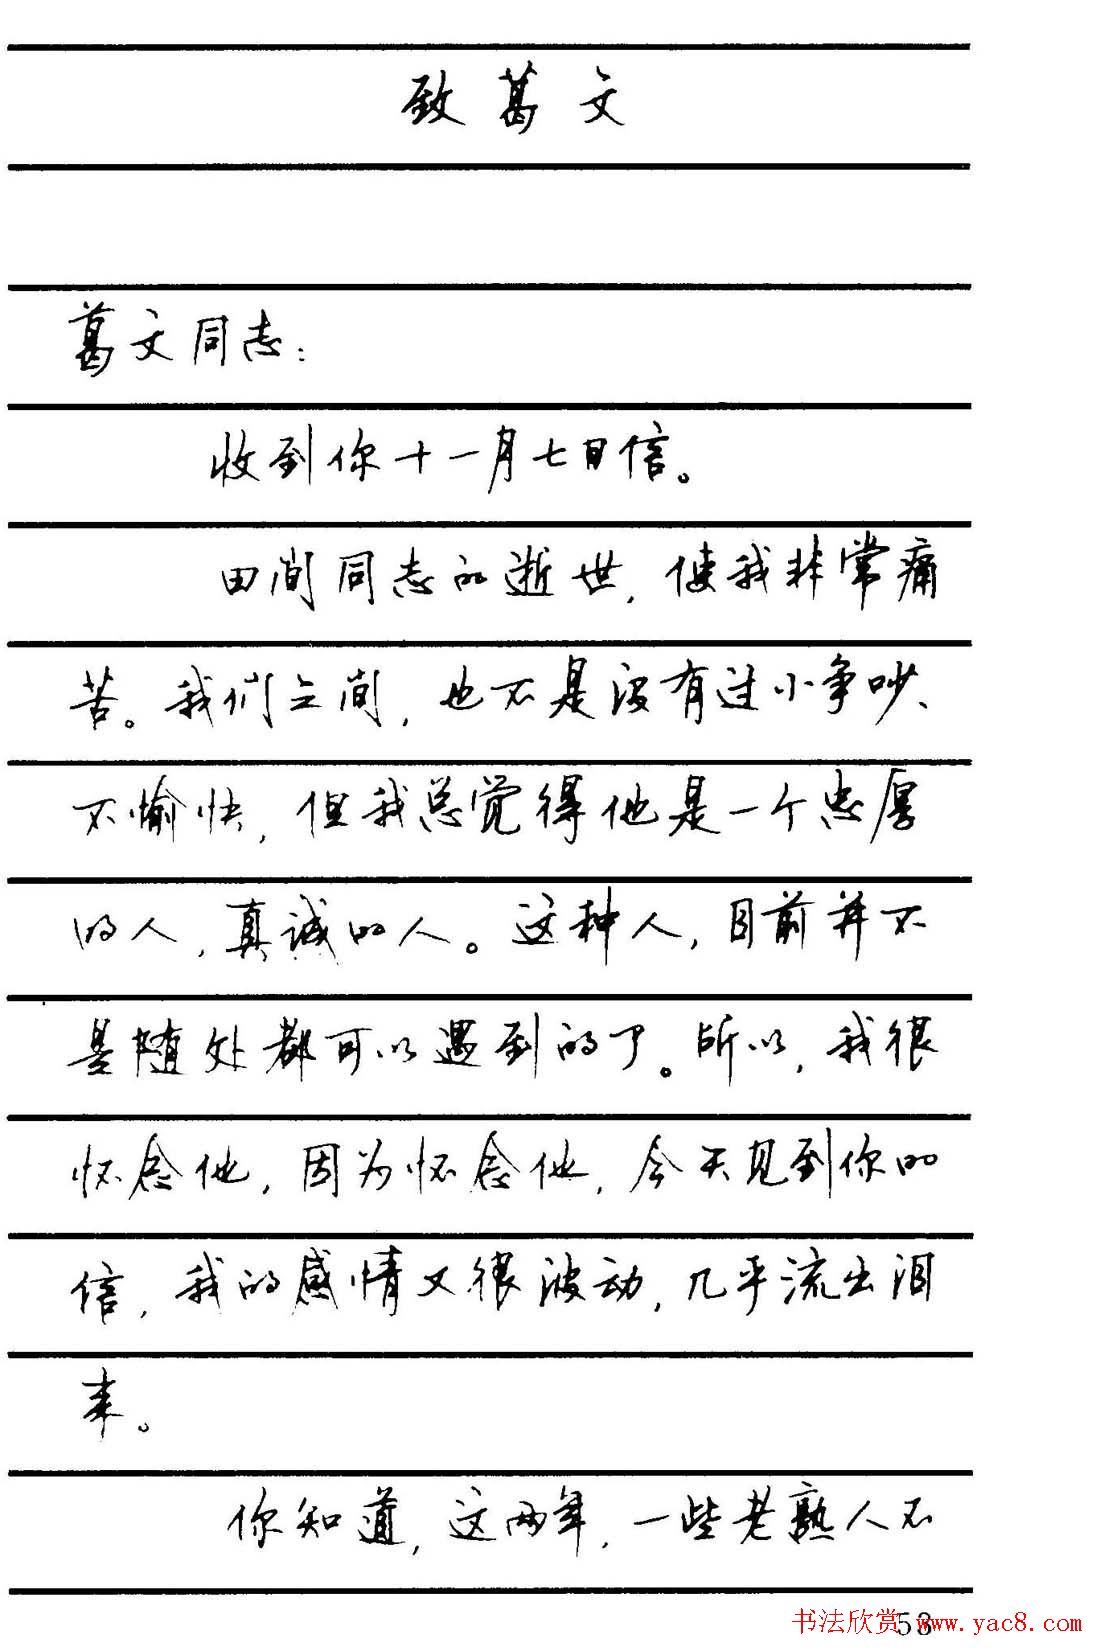 致葛文
葛文同志：
收到你十一月七日信。
田间同志的逝世，使我非常痛
苦。我们之间，也不是没有过小争吵、
不愉快，但我总觉得他是一个忠厚
的人，真诚的人。这种人，目前并不
是随处都可以遇到的了。所以，我很
怀念他，因为怀念他，今天见到你的
信，我的感情又很波动，几乎流出泪
来。
你知道，这两年，一些老熟人不
53
书法欣赏 www.yac8.com